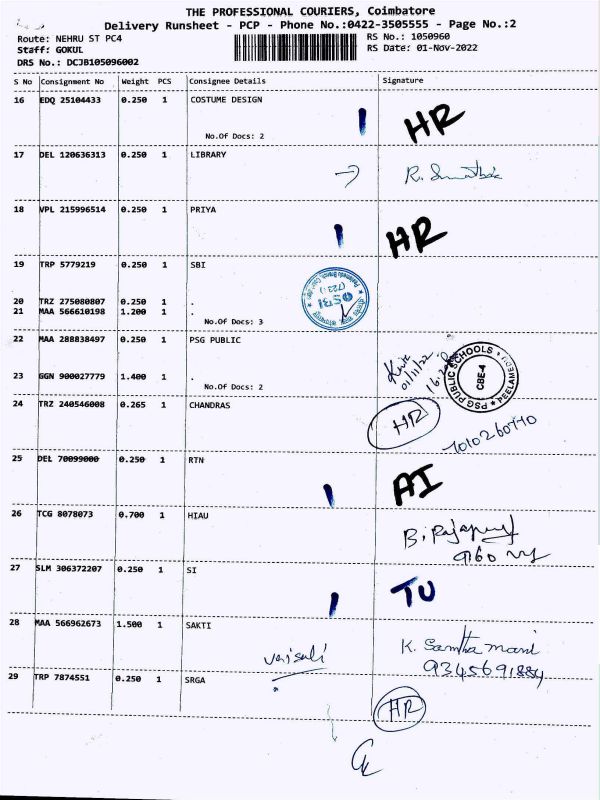 THE PROFESSIONAL COURIERS, Coimbatore
Delivery Runsheet - PCP - Phone No.:0422-3505555 - Page No.:2
Route: NEHRU ST PC4 RS No.: 1050960
Staff: GOKUL RS Date: 01-Nov-2022
DRS No.: DCJB105096002
S No Consignment No Weight PCS Consignee Details Signature
16 EDQ 25104433 0.250 1 COSTUME DESIGN
HR
No.Of Docs: 2
17 DEL 120636313 0.250 1 LIBRARY
R.
18 VPL 215996514 0.250 1 PRIYA
HR
19 TRP 5779219 0.250 1 SBI
SBI
20 TRZ 275080807 0.250 1 .
21 MAA 566610198 1.200 1 .
No.Of Docs: 3
22 MAA 288838497 0.250 1 PSG PUBLIC
01/11/22
PSG PUBLIC SCHOOLS PEELAMEDU
CBE-4
23 GGN 900027779 1.400 1 .
No.Of Docs: 2
24 TRZ 240546008 0.265 1 CHANDRAS
HR
7010260770
25 DEL 70099000 0.250 1 RTN
AI
26 TCG 8078073 0.700 1 HIAU
B.
9160
27 SLM 306372207 0.250 1 SI
TU
28 MAA 566962673 1.500 1 SAKTI
K. Santha mani
9345691884
29 TRP 7874551 0.250 1 SRGA
HR